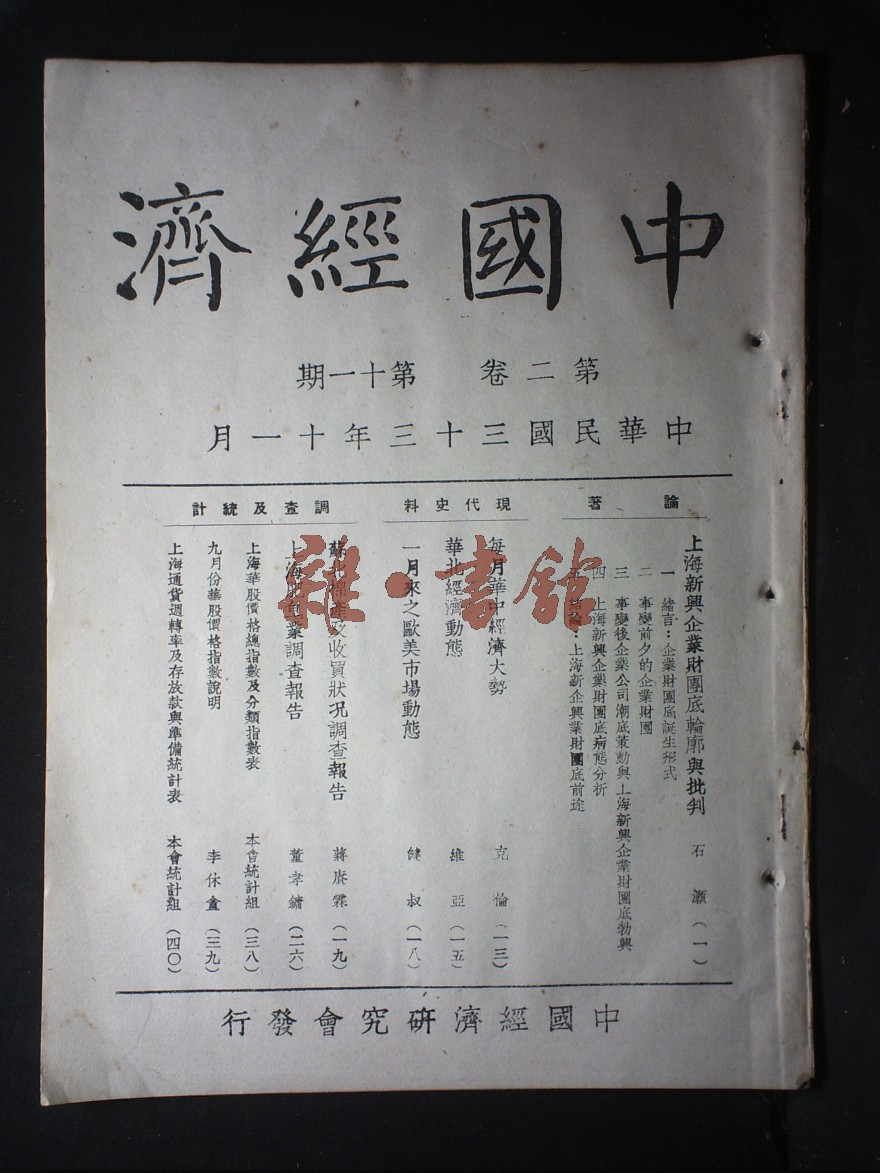 中國經濟
第二卷 第十一期
中華民國三十三年十一月
論著
上海新興企業財團底輪廓與批判 石瀨(一)
一 緒言：企業財團底誕生形式
二 事變前夕的企業財團
三 事變後企業公司潮底策動與上海新興企業財團底勃興
四 上海新興企業財團底病態分析
五 結論：上海新企興業財團底前途
現代史料
每月華中經濟大勢 克倫(一三)
華北經濟動態 維亞(一五)
一月來之歐美市場動態 健叔(一八)
調查及統計
蘇北棉產及收買狀況調查報告 蔣庚霖(一九)
上海肥皂業調查報告 董孝鏞(二六)
上海華股價格總指數及分類指數表 本會統計組(三八)
九月份華股價格指數說明 李休盦(三九)
上海通貨週轉率及存放款與準備統計表 本會統計組(四〇)
中國經濟研究會發行
雜·書館